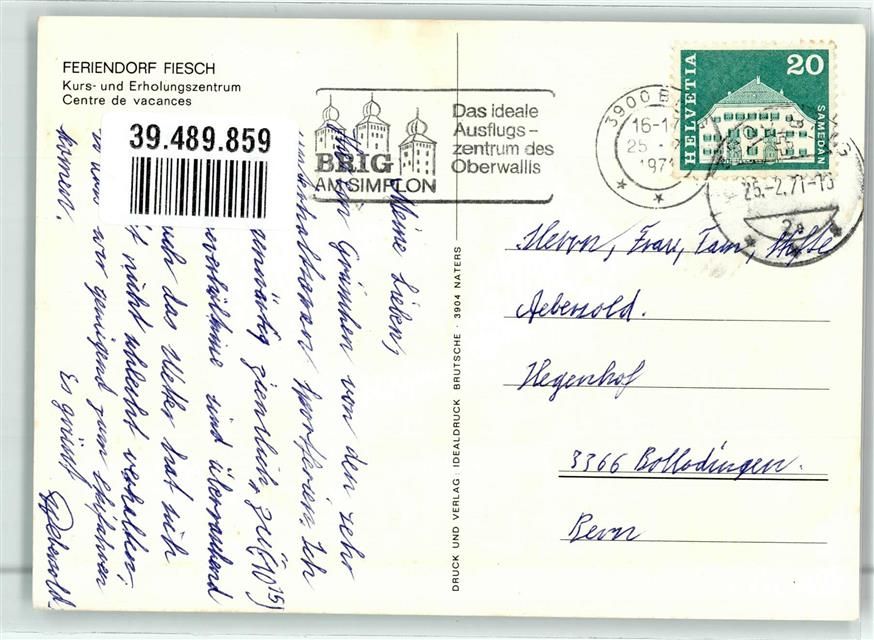 FERIENDORF FIESCH
Kurs- und Erholungszentrum
Centre de vacances
39.489.859
BRIG
AM SIMPLON
Das ideale
Ausflugs-
zentrum des
Oberwallis
3900 B
16-17
25
1971
HELVETIA
20
SAMEDAN
25.-2.71-18
2a
DRUCK UND VERLAG: IDEALDRUCK BRUTSCHE · 3904 NATERS
Herrn, Frau, Fam,
Aebersold.
Hegenhof
3366 Bollodingen.
Bern
Meine Lieben,
Grüsschen von den sehr
unterhaltsamen Sportferien. Ich
ziemlich
sind überraschend
das Wetter hat sich
nicht schlecht verhalten,
wir genügend zum Skifahren
kamen.
Es grüsst
Aebersold